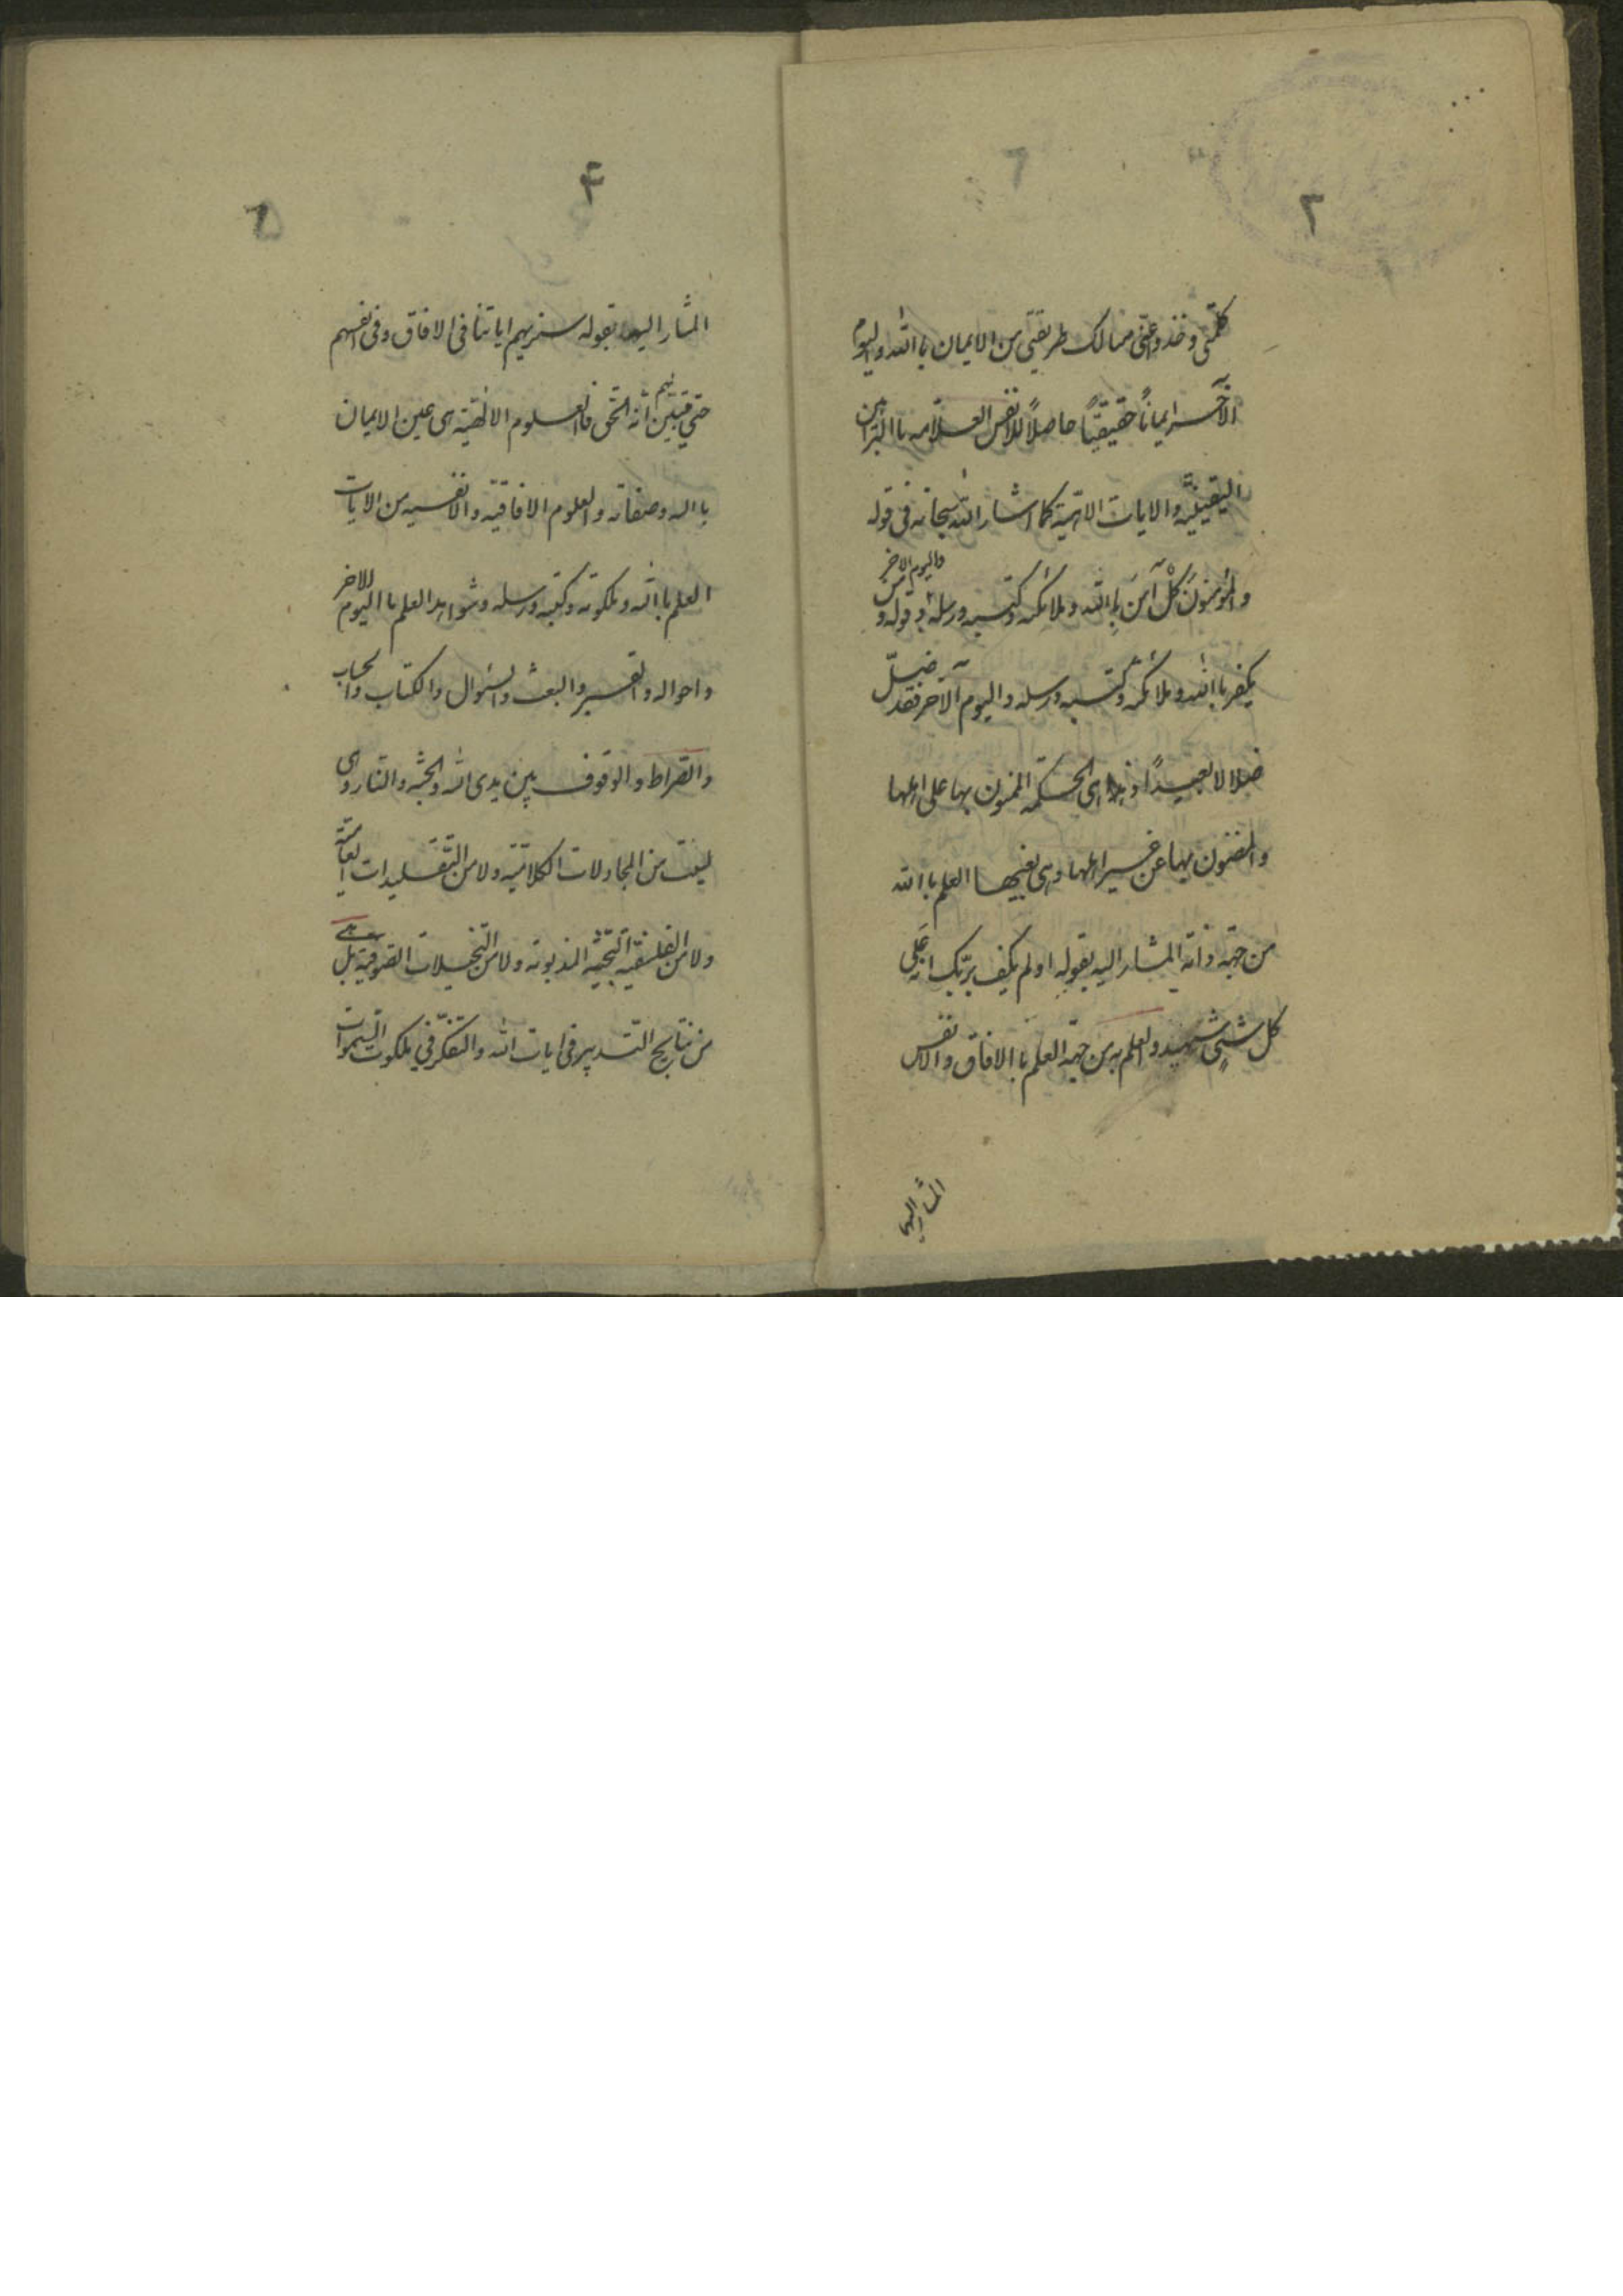 ٢
كلمتي وخذوا عني مسالك طريقتي من الايمان باالله واليوم
الآخر ايماناً حقيقيّاً حاصلاً للانفس العلّامه باالبراهين
اليقينيّه والايات الالهيّة كما اشار الله سبحانه في قوله
والمؤمنونَ كلٌّ آمنَ باالله وملائكته وكتبه ورسله وقوله ومن
واليوم الاخر
يكفر باالله وملائكته وكتبه ورسله واليوم الآخر فقد ضلّ
ضلالا بعيداً وهذا هي الحكمة الممنون بها على اهلها
والمضنون بها عن غير اهلها وهي بعينها العلم باالله
من جهة ذاته المشار اليه بقوله اولم يكف بربّك انه على
كل شيٍ شهيد والعلم به من جهة العلم باالافاق والانفس
المشار اليهما
٤
المشار اليهما بقوله سنريهم اياتنا في الافاق وفي انفسهم
حتي يتبين لهم انه الحق فاالعلوم الالهيّة هي عين الايمان
باالله وصفاته والعلوم الافاقيّه والانفسيه من الايات
العلم باالله وملكوته وكتبه ورسله وشواهد العلم باليوم الاخر
واحواله والقبر والبعث والسؤال والكتاب والحساب
والصراط والوقوف بين يدي الله والجنّه والنار وهي
ليست من المجادلات الكلاميّه ولا من التقليدات العاميّة
ولا من الفلسفيّه البحثيّه المذمومه ولا من التخيلات الصوفيّة بل هي
من نتايج التدبير في ايات الله والتفكّر في ملكوت السّموات